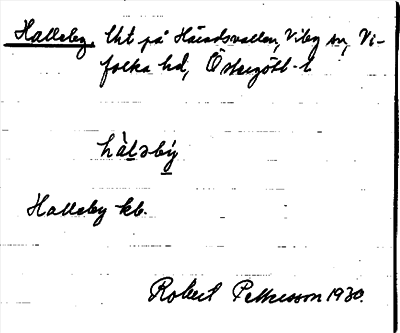 Halleby, lht på Häradsvallen, Viby sn, Vi-
folka hd, Östergötl. l
hàlsby̠
Halleby kb.
Robert Pettersson 1930.